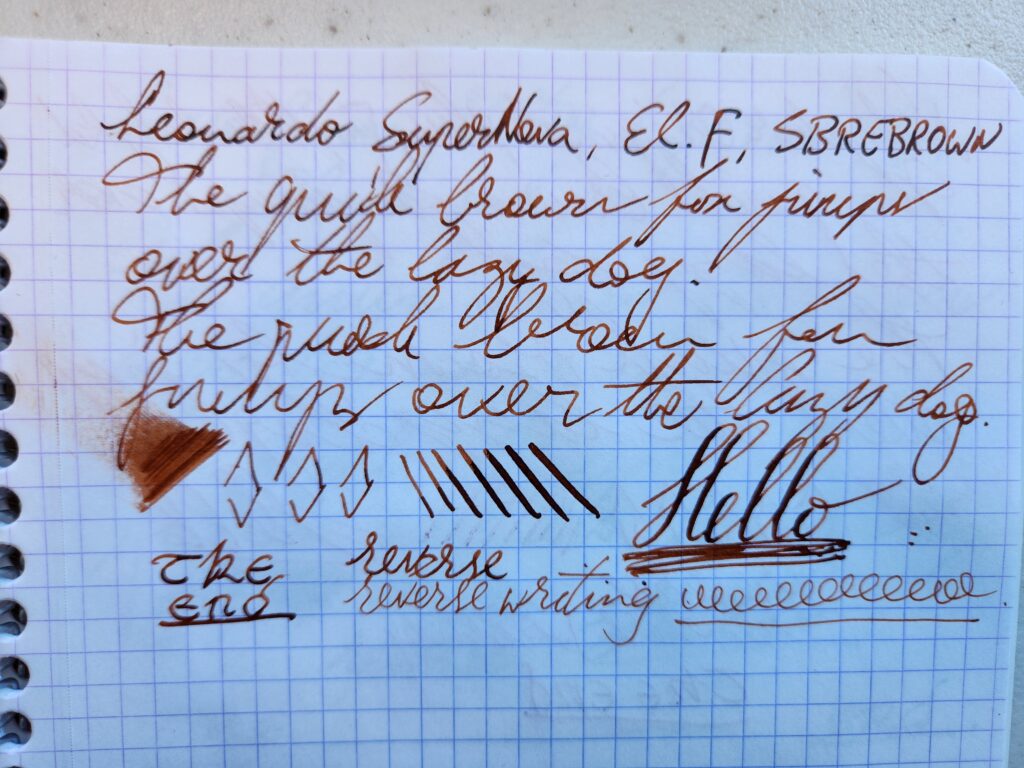 Leonardo SuperNova, El. F, SBREBROWN
The quick brown fox jumps
over the lazy dog.
The quick brown fox
jumps over the lazy dog.
Hello
the reverse
end reverse writing